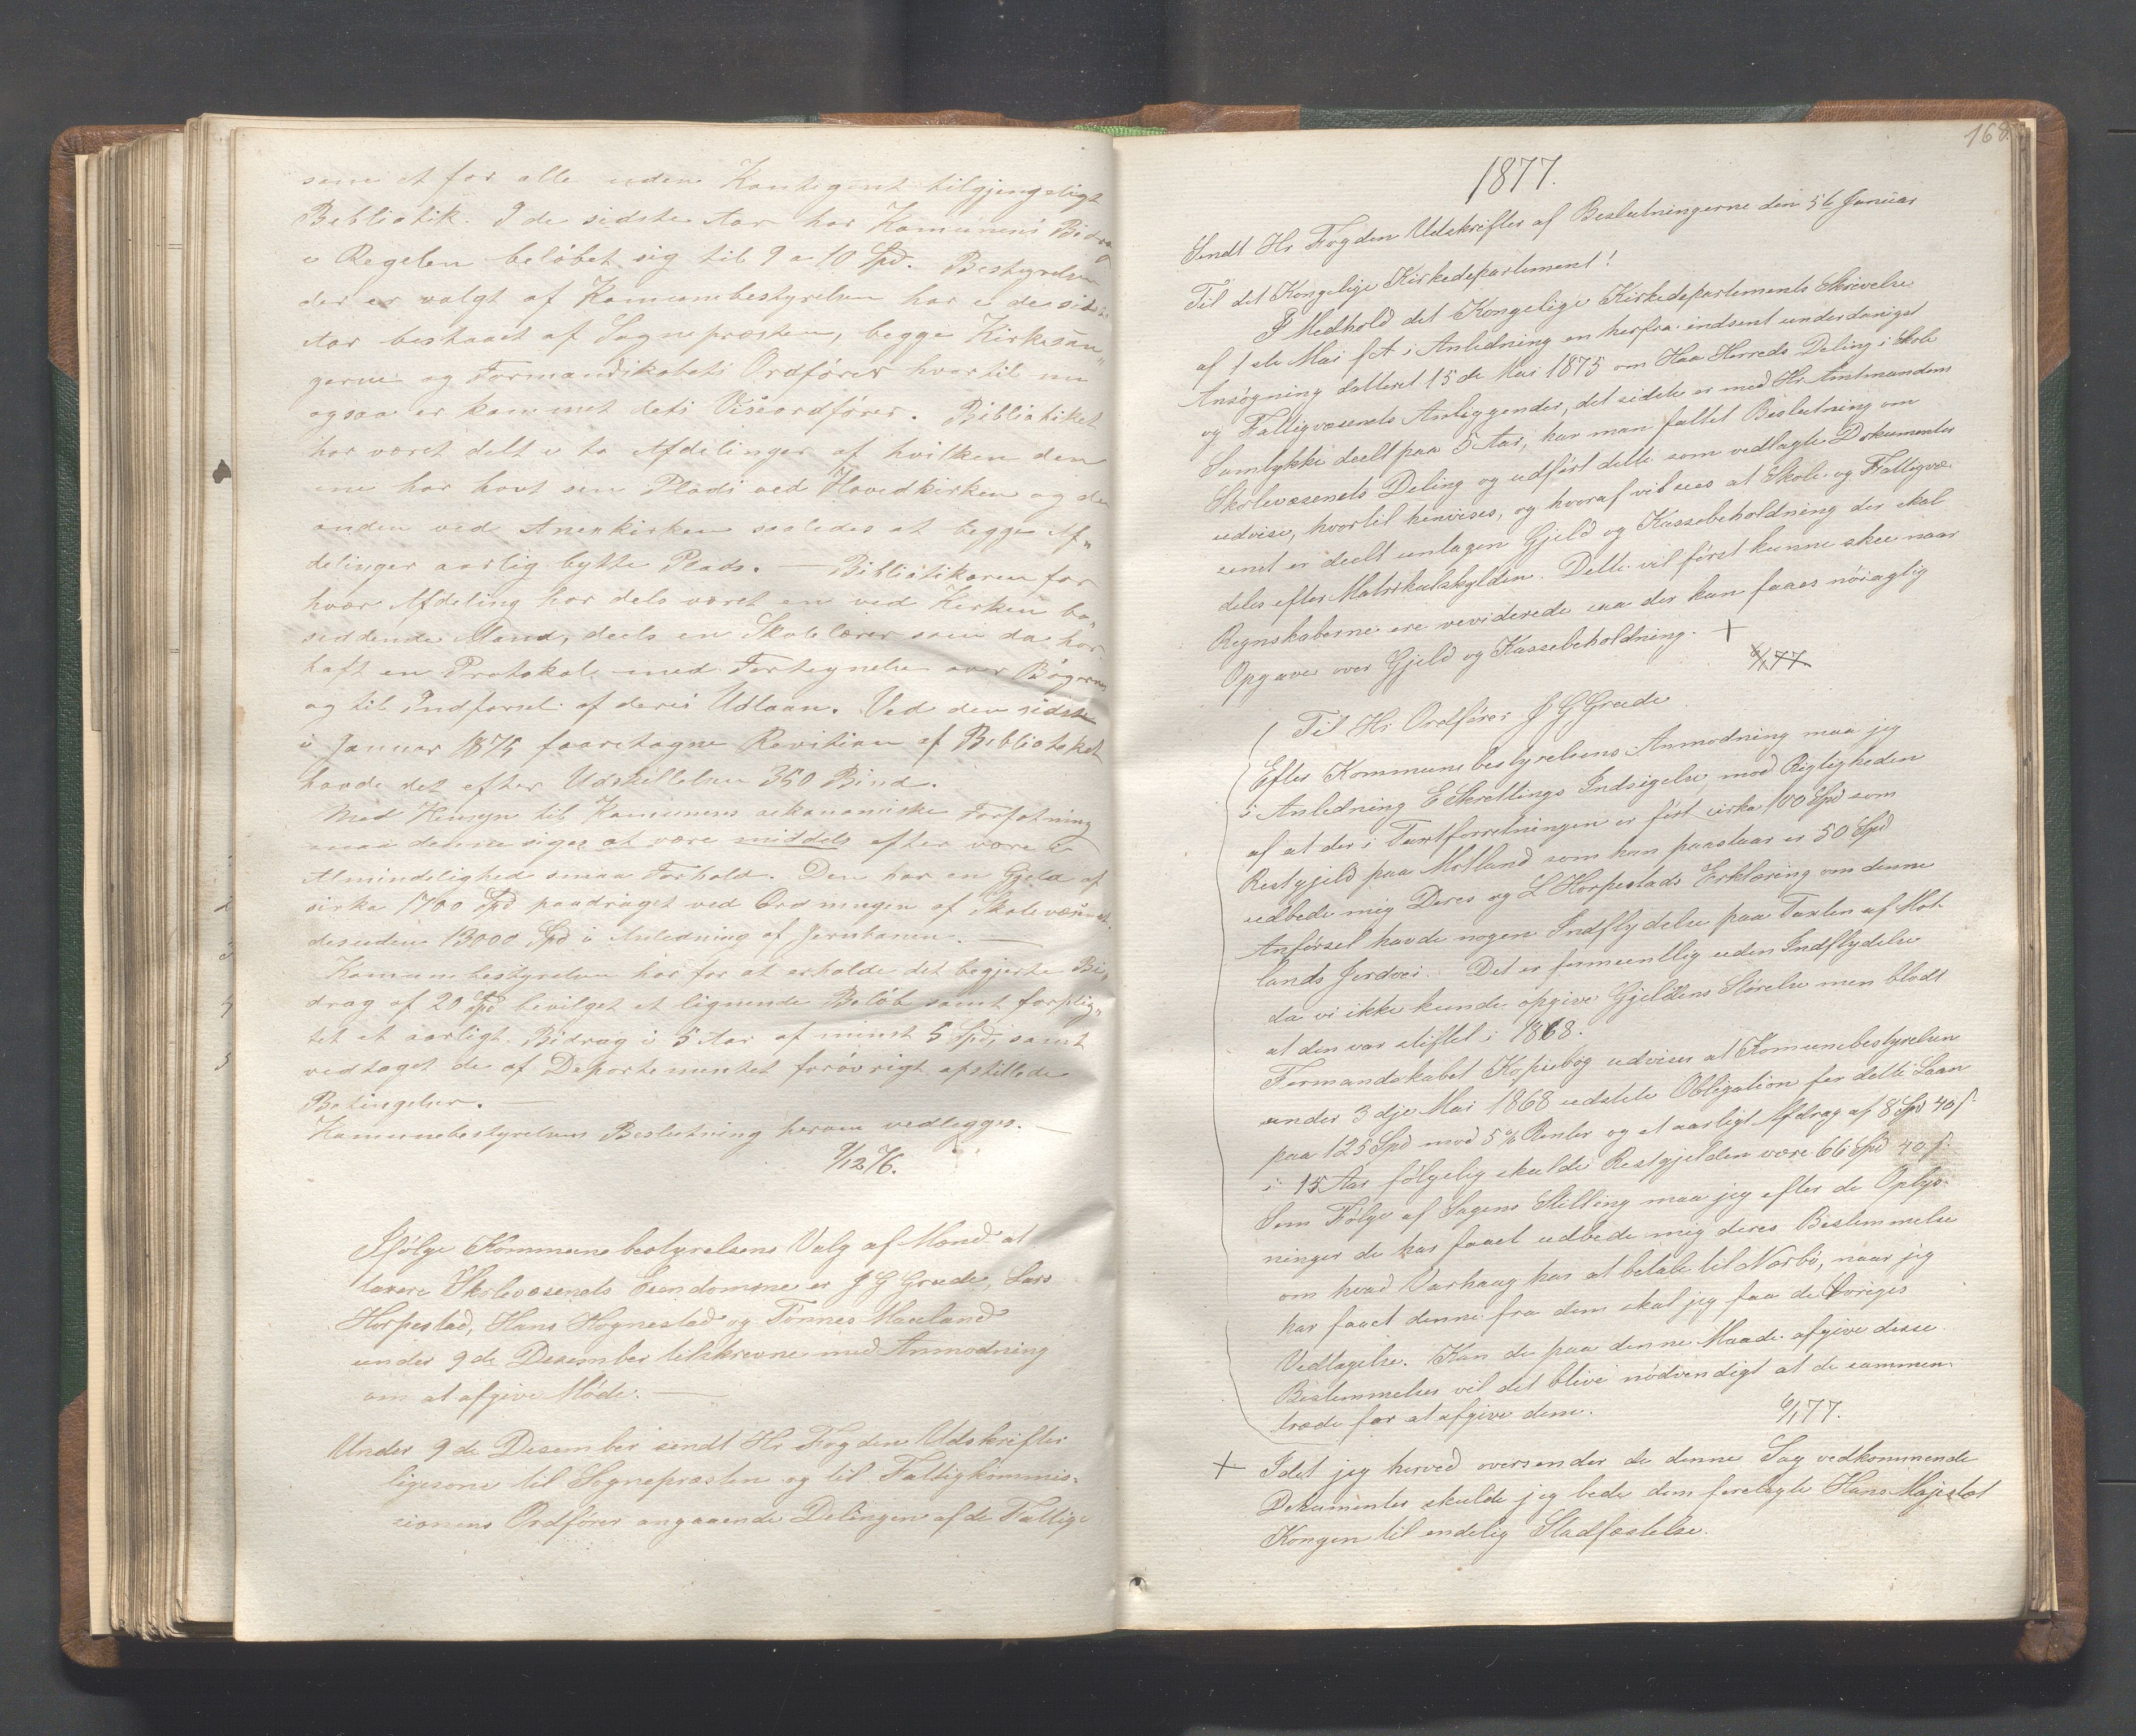 som et for alle uden Kontegent tilgjengeligt
Bibliotik. I de sidste Aar har Komunens Bidrag
i Regelen beløbet sig til 9 a 10 Spd. Bestyrelsen
der er valgt af Komunebestyrelsen har i de sidste
Aar bestaaet af Sognepræsten, begge Kirkesan„
gerne og Formandskabets Ordfører hvortil nu
ogsaa er kommet dets Viseordfører. Bibliotiket
har været delt i to Afdelinger af hvilken den
ene har havt sin Plads ved Hovedkirken og den
anden ved Anexkirken saaledes at begge Af„
delinger aarlig bytte Plads. — Bibliotikaren for
hver Afdeling har dels været en ved Kirken bo„
siddende Mand, deels en Skolelærer som da har
haft en Protokol med Fortegnelse over Bøgerne
og til Indførsel af deres Udlaan. Ved den sidste
i Januar 1875 foaretagne Revition af Biblioteket
havde det efter Udskillelsen 350 Bind.
Med Hensyn til Komunens økonomiske Forfatning
maa denne siges at være middels efter vore i
Almindelighed smaa Forhold. Den har en Gjeld af
sirka 1700 Spd paadraget ved Ordningen af Skolevæsenet,
desuden 13000 Spd i Anledning af Jernbanen. —
Komunebestyrelsen har for at erholde det begjerte Bi„
drag af 20 Spd bevilget et lignende Beløb samt forplig„
tet et aarligt Bidrag i 5 Aar af minst 5 Spd, samt
vedtaget de af Departementet forøvrigt opstillede
Betingelser. —
Komunebestyrelsens Beslutning herom vedlegges. —
9/12 76.
Ifølge Kommunebestyrelsens Valg af Mænd at
taxere Skolevæsenets Eiendomme er J G Grude, Lars
Horpestad, Hans Hognestad og Tønnes Haaland
under 9de Desember tilskrevne med Anmodning
om at afgive Møde. —
Under 9de Desember sendt Hr Fogden Udskrifter
ligesom til Sognepræsten og til Fattigkommis-
sionens Ordfører angaaende Delingen af de Fattige
168.
1877.
Sendt Hr Fogden Udskrifter af Beslutningerne den 5te Januar
Til det Kongelige Kirkedepartement!
I Medhold det Kongelige Kirkedepartements Skrivelse
af 1ste Mai f A i Anledning en herfra indsent underdanigst
Ansøgning datteret 15de Mai 1875 om Haa Herreds Deling i Skole
og Fattigvæsenets Anleggender, det sidste er med Hr Amtmandens
Samtykke deelt paa 5 Aar, har man fattet Beslutning om
Skolevæsenets Deling og udført dette som vedlagte Dokumenter
udvise, hvortil henvises, og hvoraf vil sees at Skole og Fattigvæ-
senet er deelt untagen Gjeld og Kassebeholdning der skal
deles efter Matrikulskylden. Dette vil først kunne skee naar
Regnskaberne ere reviderede saa der kan faaes nøiagtig
Opgaver over Gjeld og Kassebeholdning. +
6/1 77
Til Hr Ordfører J G Grude
Efter Kommunebestyrelsens Anmodning maa jeg
i Anledning E Skrettings Indsigelse mod Rigtigheden
af at der i Taxtforretningen er ført cirka 100 Spd som
Restgjeld paa Motland som han paastaar er 50 Spd
udbede mig Deres og L Horpestads Erklæring om denne
Anførsel havde nogen Indflydelse paa Taxten af Mot-
lands Jordvei. Det er formeentlig uden Indflydelse
da vi ikke kunde opgive Gjeldens Størelse men blodt
at den var stiftet i 1868.
Formandskabet Kopiebog udviser at Komunebestyrelsen
under 3dje Mai 1868 udstete Obligation for dette Laan
paa 125 Spd mod 5% Renter og et aarligt Afdrag af 8 Spd 40 s
i 15 Aar følgelig skulde Restgjelden være 66 Spd 40 s.
Som Følge af Sagens Stilling maa jeg efter de Oplys-
ninger de har faaet udbede mig deres Bestemmelse
om hvad Varhaug har at betale til Nærbø, naar jeg
har faaet denne fra dem skal jeg faa de Øvriges
Vedtagelse. Kan de paa denne Maade afgive disse
Bestemmelser vil det blive nødvendigt at de sammen-
træde for at afgive dem.
6/1 77.
+ Idet jeg herved oversender de denne Sag vedkommende
Dokumenter skulde jeg bede dem forelagte Hans Majestæt
Kongen til endelig Stadfæstelse.